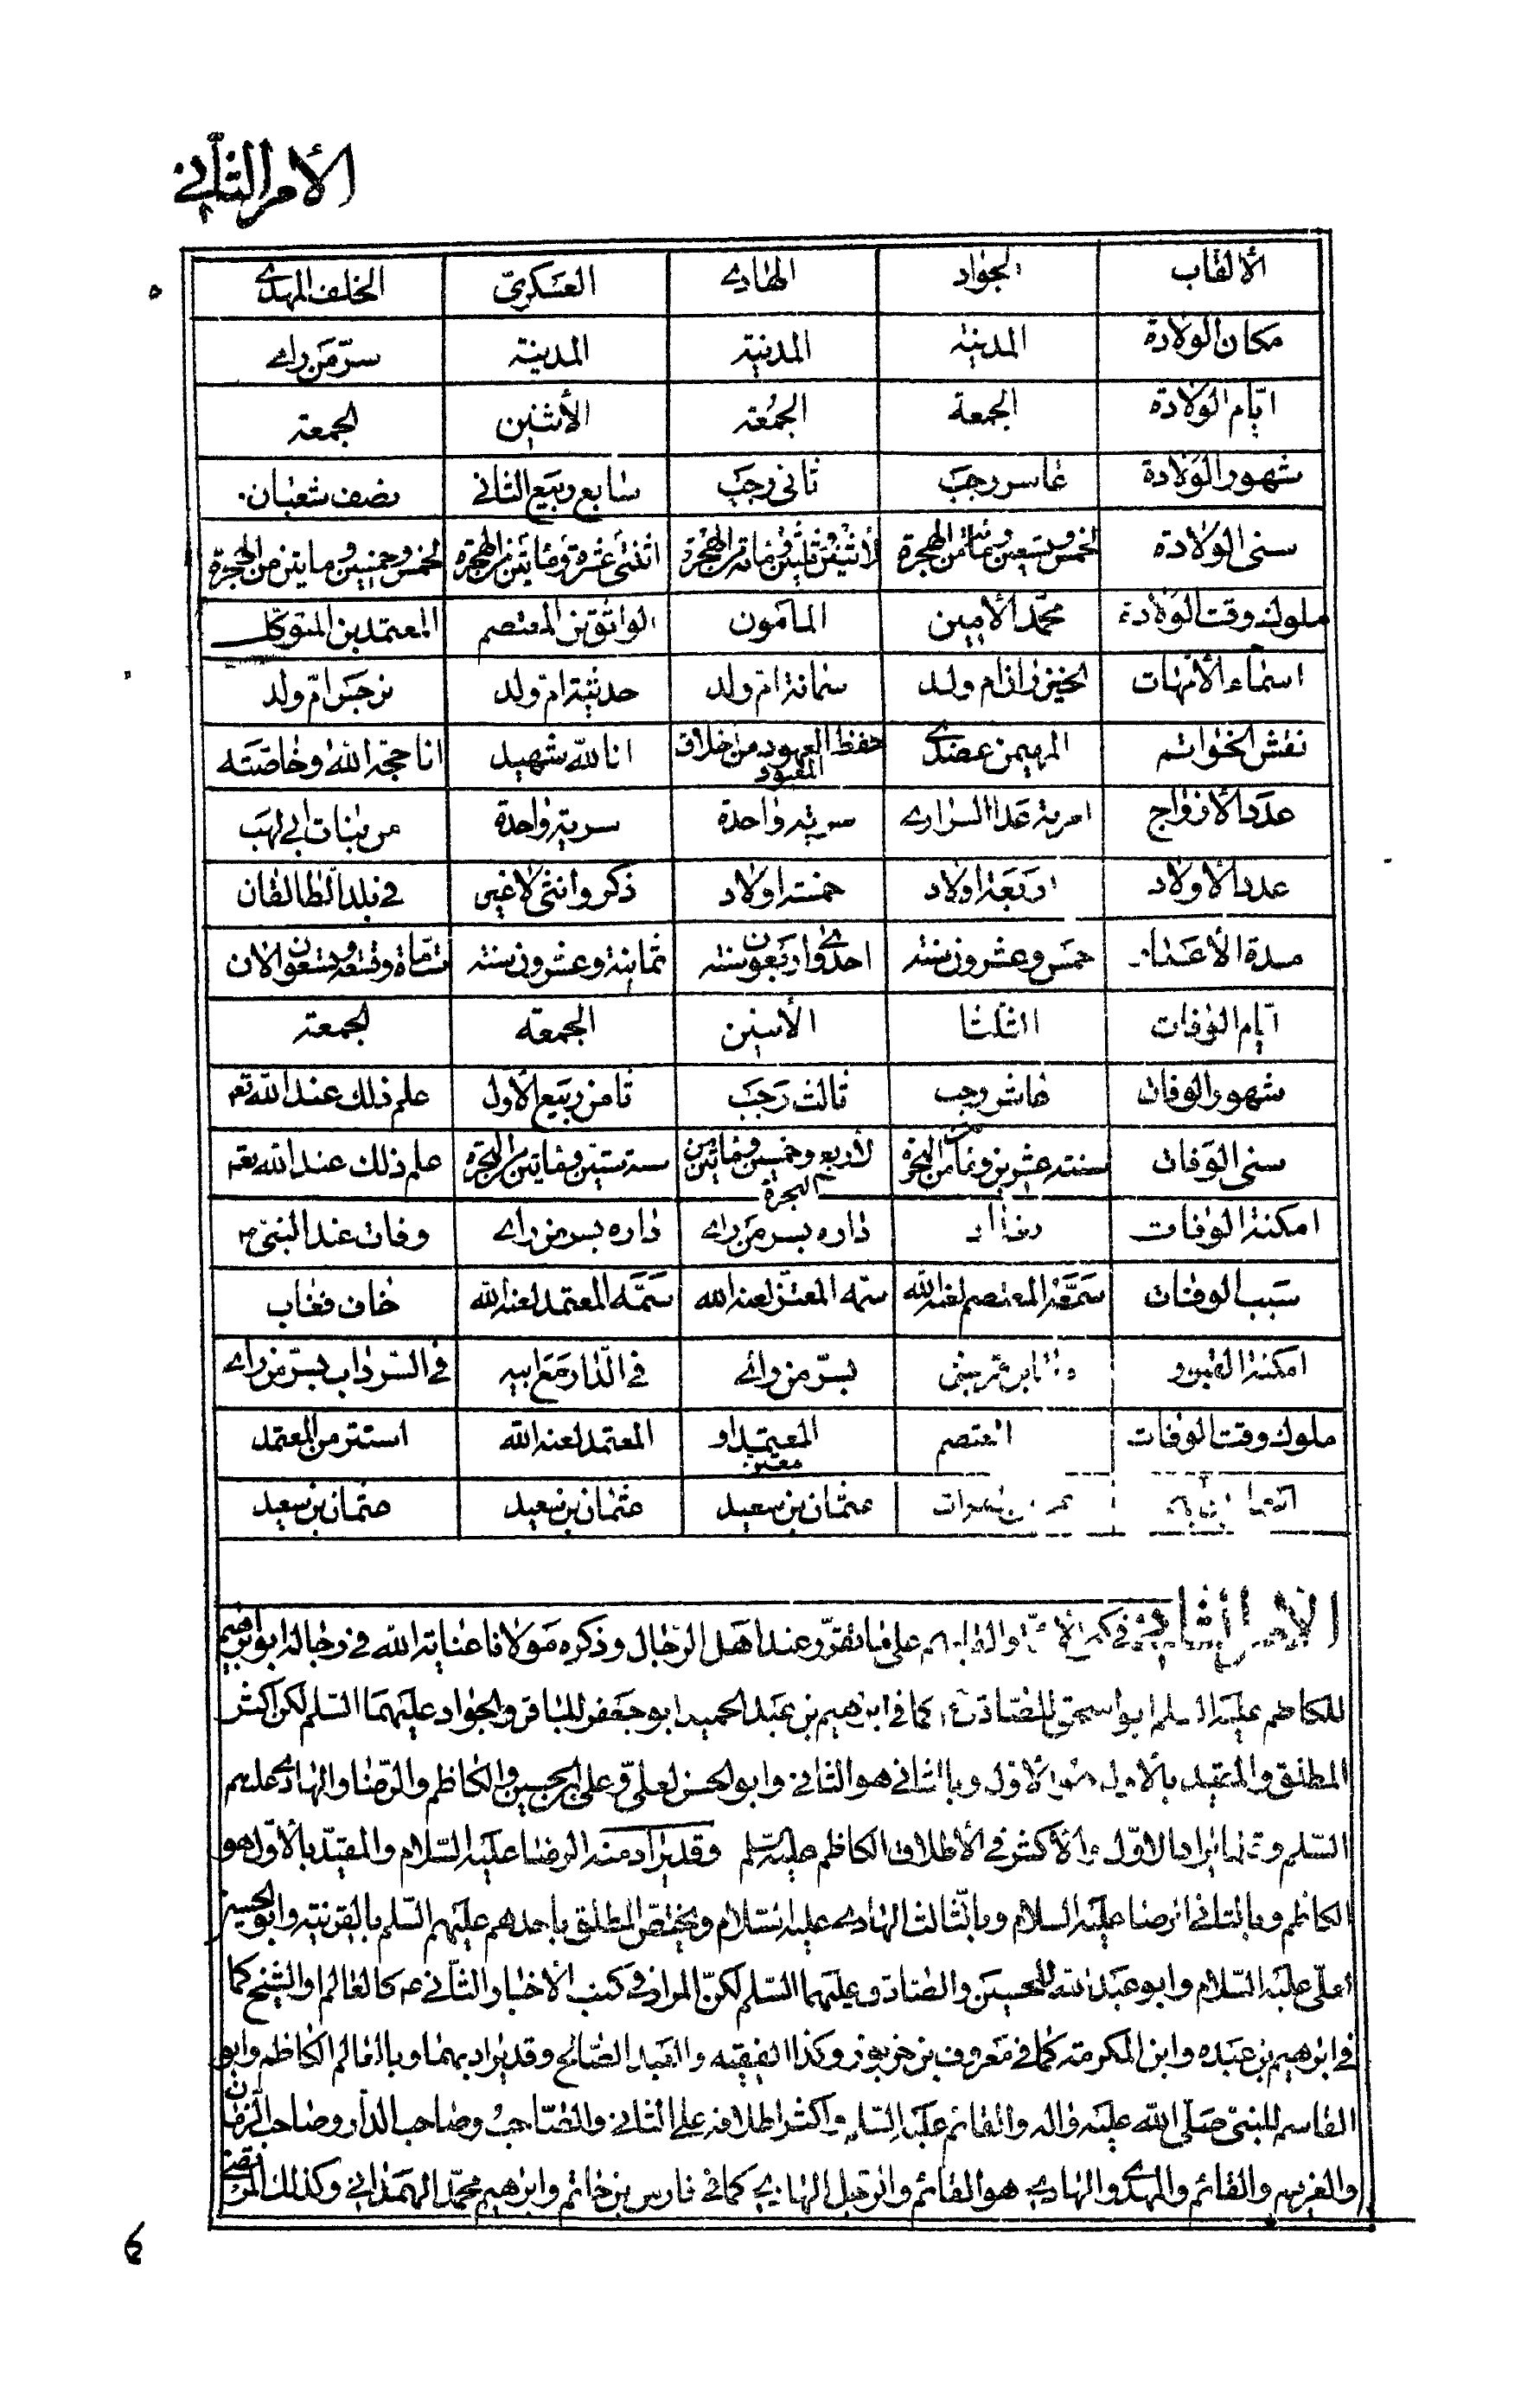 الأمر الثاني
الألقاب الجواد الهادي العسكري الخلف المهدي
مكان الولادة المدينة المدينة المدينة سرّ من راى
ايّام الولادة الجمعة الجمعة الأثنين الجمعة
شهور الولادة عاشر رجب ثاني رجب سابع ربيع الثاني نصف شعبان
سنى الولادة لخمس وتسعين ومائة من الهجرة لأثنين وثلثين ومائة من الهجرة اثنتى عشرة ومأتين من الهجرة لخمس وخمسين ومايتين من الهجرة
ملوك وقت الولادة محمّد الأمين المأمون الواثق بن المعتصم المعتمد بن المتوكّل
اسماء الأمّهات الخيزران ام ولد سمانة امّ ولد حديثة امّ ولد نرجس امّ ولد
نقش الخواتم المهيمن عضدي حفظ العهود من اخلاق المعبود انا لله شهيد انا حجّة الله وخاصّته
عدد الأزواج امرية عدا السراري سرية واحدة سرية واحدة من بنات ابى لهب
عدد الأولاد اربعة اولاد خمسة اولاد ذكر وانثى لا غير في بلد الطالقان
مدة الأعمار خمس وعشرون سنة احدى واربعون سنة ثمانية وعشرون سنة وتسعون الآن
ايّام الوفات الثلثا الأثنين الجمعة الجمعة
شهور الوفات عاشر رجب ثالث رجب ثامن ربيع الأول علم ذلك عند الله تعم
سنى الوفات سنة عشرين ومأتين من الهجرة لأربع وخمسين ومأتين من الهجرة ستة ستين ومأتين من الهجرة علم ذلك عند الله تعم
امكنة الوفات داره بسر من راى داره بسر من راى وفات عند النبيّ
سبب الوفات سمّه المعتصم لعنه الله سمّه المعتز لعنه الله سمّه المعتمد لعنه الله خاف فغاب
امكنة القبور بسرّ من راى في الدّار مع ابيه في السّرداب بسرّ من راى
ملوك وقت الوفات المعتصم المعتمد او معتز المعتمد لعنه الله استتر من المعتمد
عثمان بن سعيد عثمان بن سعيد عثمان بن سعيد
الأمر الثاني في والقابهم على ما تقرّر عند اهل الرّجال وذكره مولانا عناية الله في رجاله ابو ابرهيم
للكاظم عليه السلم ابو اسحق للصّادق كما في ابرهيم بن عبد الحميد ابو جعفر للباقر والجواد عليهما السّلم لكن اكثر
المطلق والمقيد بالأول هو الأول وبالثاني هو الثاني وابو الحسن لعلىّ وعلى بن الحسين والكاظم والرّضا والهادى عليهم
السّلم يراد الاوّل والأكثر في الأطلاق الكاظم عليه السلم وقد يراد منه الرضا عليه السّلام والمقيّد بالأوّل هو
الكاظم وبالثاني الرضا عليه السلام وبالثّالث الهادى عليه السّلام ويختصّ المطلق باحدهم عليهم السّلم بالقرينة وابو الحسين
لعلى عليه السّلام وابو عبد الله للحسين والصّادق عليهما السّلم لكنّ المراد في كتب الأخبار الثّاني كالعالم او الشيخ كما
في ابرهيم بن عبده وابن المكرمة كما في معروف بن خربوذ وكذا الفقيه والعبد الصّالح وقد يراد بهما وبالعالم الكاظم وابو
القاسم للنبى صلّى الله عليه واله والقائم عليه السّلم واكثر اطلاقه على الثانى والصّاحب وصاحب الدّار وصاحب الزمان
والغريم والقائم والمهدى والهادى هو القائم والرجل الهادي كما في فارس بن حاتم وابرهيم محمّد الهمذاني وكذلك